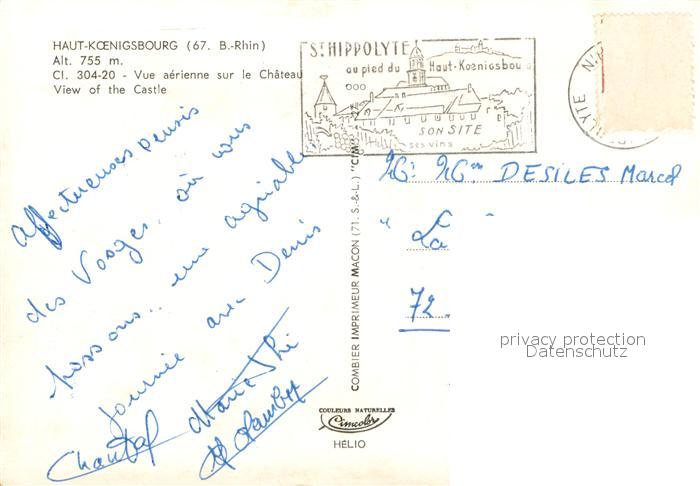 HAUT-KŒNIGSBOURG (67. B.-Rhin)
Alt. 755 m.
Cl. 304-20 - Vue aérienne sur le Château
View of the Castle
Affectueuses pensées
des Vosges, où nous
passons une agréable
journée avec Denis
Chantal
St HIPPOLYTE
au pied du Haut-Kœnigsbourg
SON SITE
ses vins
COMBIER IMPRIMEUR MACON (71. S.-&-L.) "CIM
Mr. Mme DESILES Marcel
" La "
72
privacy protection
Datenschutz
COULEURS NATURELLES
Cimcolor
HÉLIO